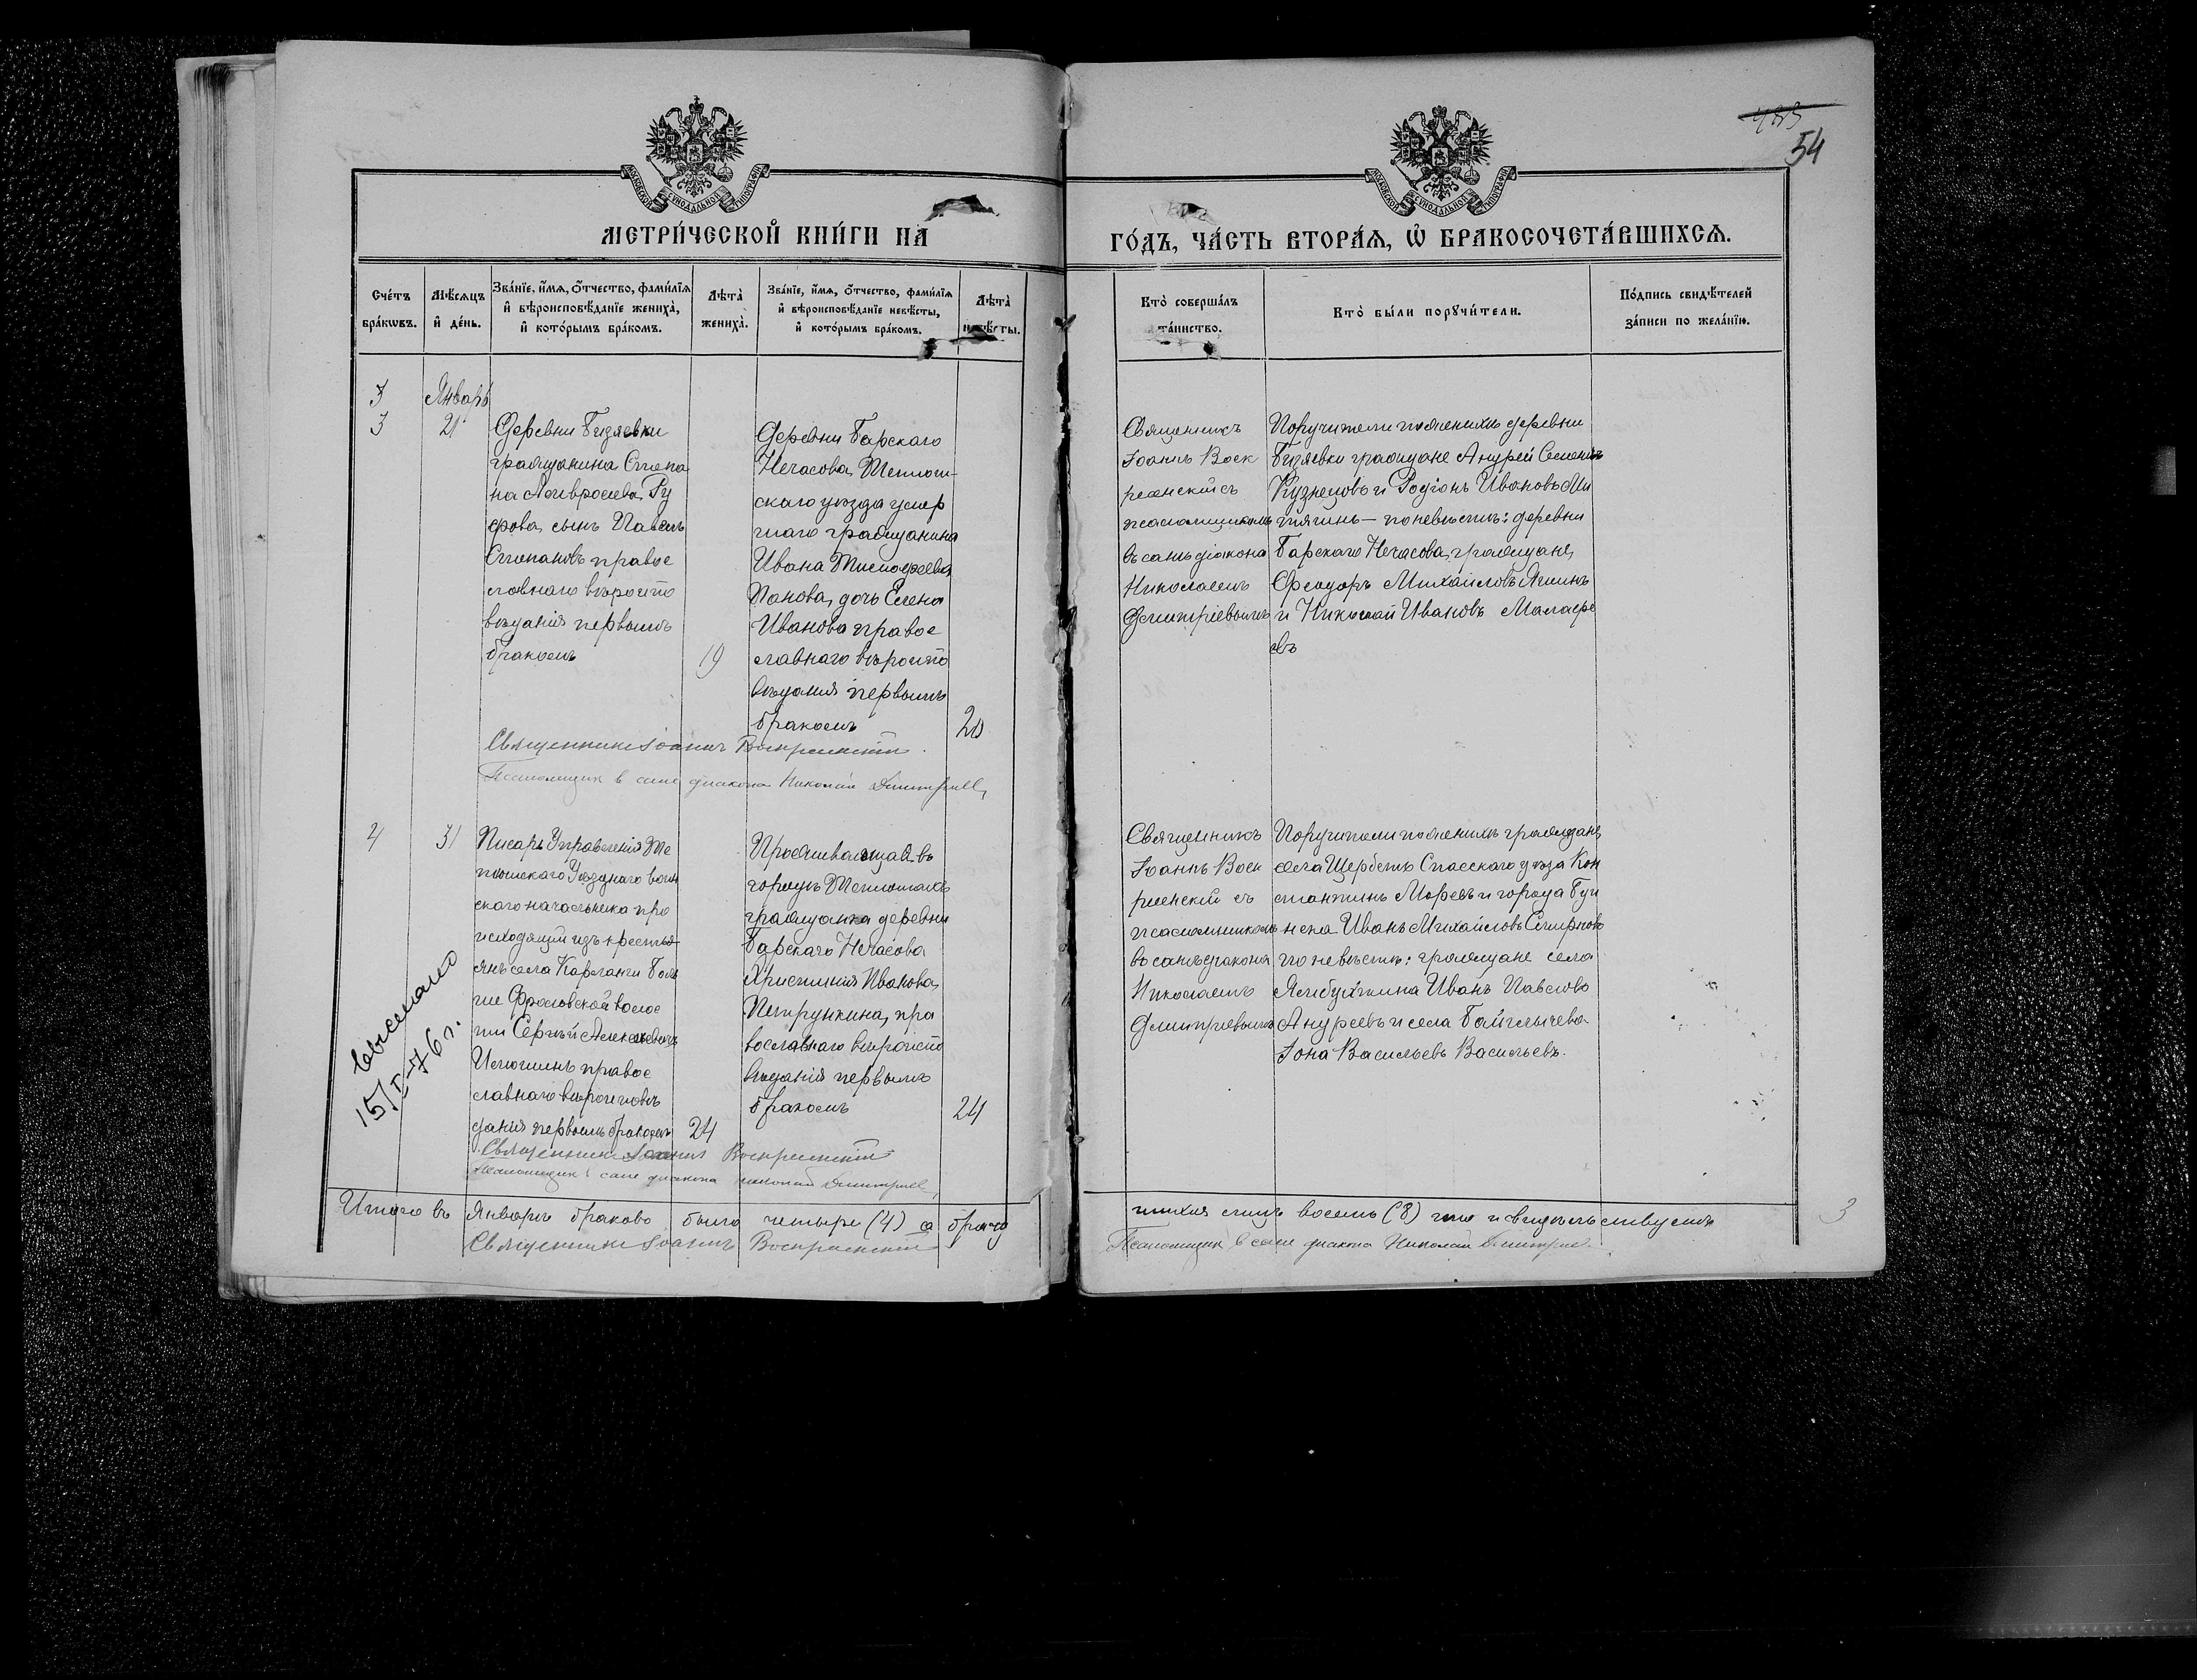 483
54
МОСКОВСКОЙ СУНОДАЛЬНОЙ ТИПОГРАФІИ
МОСКОВСКОЙ СУНОДАЛЬНОЙ ТИПОГРАФІИ
МЕТРИ́ЧЕСКОЙ КНИ́ГИ НА
ГО́ДЪ, ЧА́СТЬ ВТОРА́Ѧ, Ѽ БРАКОСОЧЕТА́ВШИХСѦ.
Сче́тъ
бра́кѡвъ.
Мѣ́сѧцъ
и҆ де́нь.
Зва́нїе, и҆́мѧ, ѻ҆́тчество, фами́лїѧ
и҆ вѣроисповѣ́данїе жениха̀,
и҆ кото́рымъ бра́комъ.
Лѣта̀
жениха̀.
Зва́нїе, и҆́мѧ, ѻ҆́тчество, фами́лїѧ
и҆ вѣроисповѣ́данїе невѣ́сты,
и҆ кото́рымъ бра́комъ.
Лѣта̀
невѣ́сты.
Кто̀ соверша́лъ
та́инство.
Кто̀ бы́ли порꙋчи́тели.
По́дпись свидѣ́телей
за́писи по жела́нїю.
3
Январь
3
21
Деревни Бизяевки
гражданина Степа
на Амвросіева
сынъ Павелъ
Степановъ правос
лавнаго вѣроиспо
вѣданія первымъ
бракомъ
19
Деревни Барскаго
Нечасова, Тетюш-
скаго уѣзда умер
шаго гражданина
Ивана Тимофеева
Панова, дочь Елена
Иванова правос
лавнаго вѣроиспо
вѣданія первымъ
бракомъ
20
Священникъ
Іоаннъ Воск
ресенскій съ
псаломщикомъ
въ санѣ діакона
Николаемъ
Димитріевымъ
Поручители по женихѣ деревни
Бизяевки граждане Андрей Семеновъ
Кузнецовъ и Родіонъ Ивановъ Ми
тягинъ — по невѣстѣ: деревни
Барскаго Нечасова, граждане,
Феодоръ Михайловъ Яшинъ
и Николай Ивановъ Малафе
евъ
Священникъ Іоаннъ Воскресенскій.
Псаломщик в сане диакона Николай Димитриев,
4
31
Писарь Управленія Те
тюшскаго Уѣзднаго воин
скаго начальника про
исходящій изъ крестья
янъ села Карланги Боль
ше Фроловской волос
ти Сергѣй Алексѣевичъ
правос
лавнаго вѣроисповѣ
данія первымъ бракомъ
24
Проживающая въ
городѣ Тетюшахъ
гражданка деревни
Барскаго Нечасова
Христинія Иванова
Петрункина, пра
вославнаго вѣроиспо
вѣданія первымъ
бракомъ
24
Священникъ
Іоаннъ Воск
ресенскій съ
псаломщикомъ
въ санѣ діакона
Николаемъ
Димитріевымъ
Поручители по женихѣ граждане
села Щербеть Спасскаго уѣзда Кон
стантинъ Моревъ и города Буи
нска Иванъ Михайловъ Смирновъ
по невѣстѣ: граждане села
Ямбухтина Иванъ Павловъ
Андреевъ и села Байглычева
Іона Васильевъ Васильевъ.
Выслано
15/I-76 г.
Священникъ Іоаннъ Воскресенскій
Псаломщик в сане диакона Николай Димитриев,
Итого въ Январѣ браковъ было четыре (4) а брачу
щихся лицъ восемь (8) что и свидѣтельствуемъ
3
Священникъ Іоаннъ Воскресенскій
Псаломщик в сане диакона Николай Димитриев.